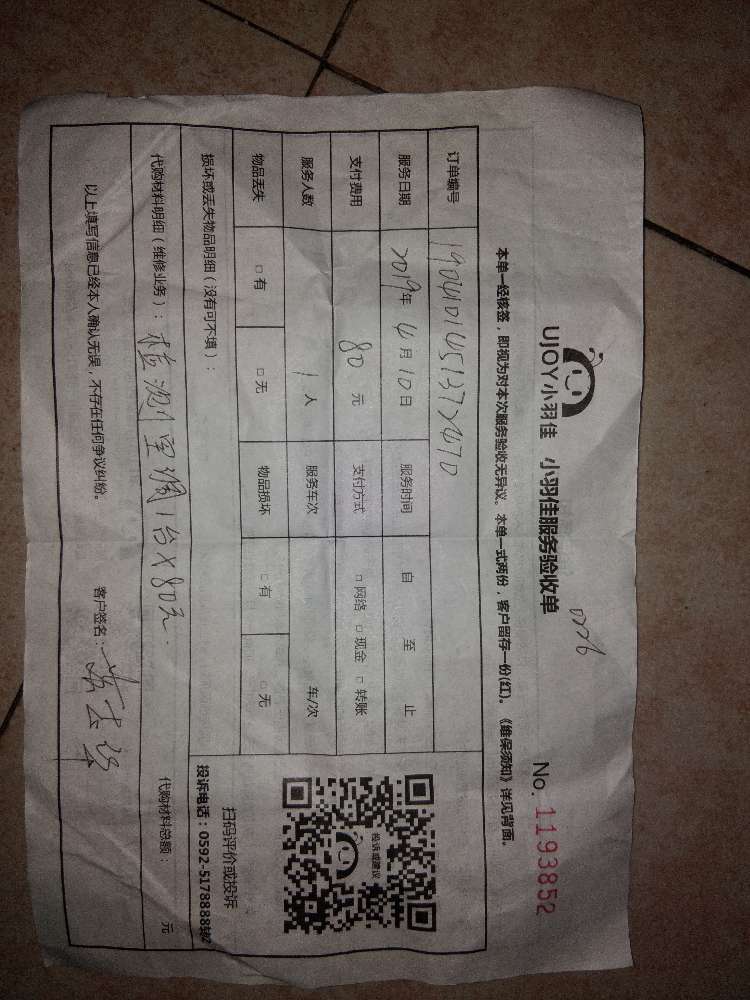 UJOY小羽佳 小羽佳服务验收单
No. 1193852
本单一经核签，即视为对本次服务验收无异议。本单一式两份，客户留存一份(红)。《维保须知》详见背面。
订单编号 1904101451372470
服务日期 2019年 4月 10日 服务时间 自 至 止
支付费用 80 元 支付方式 □ 网络 □ 现金 □ 转账
服务人数 1 人 服务车次 车/次
物品丢失 □ 有 □ 无 物品损坏 □ 有 □ 无
投诉或建议
扫码评价或投诉
投诉电话：0592-5178888转2
损坏或丢失物品明细（没有可不填）：
代购材料明细（维修业务）：检测空调1台X80元 代购材料总额： 元
以上填写信息已经本人确认无误，不存在任何争议纠纷。 客户签名：